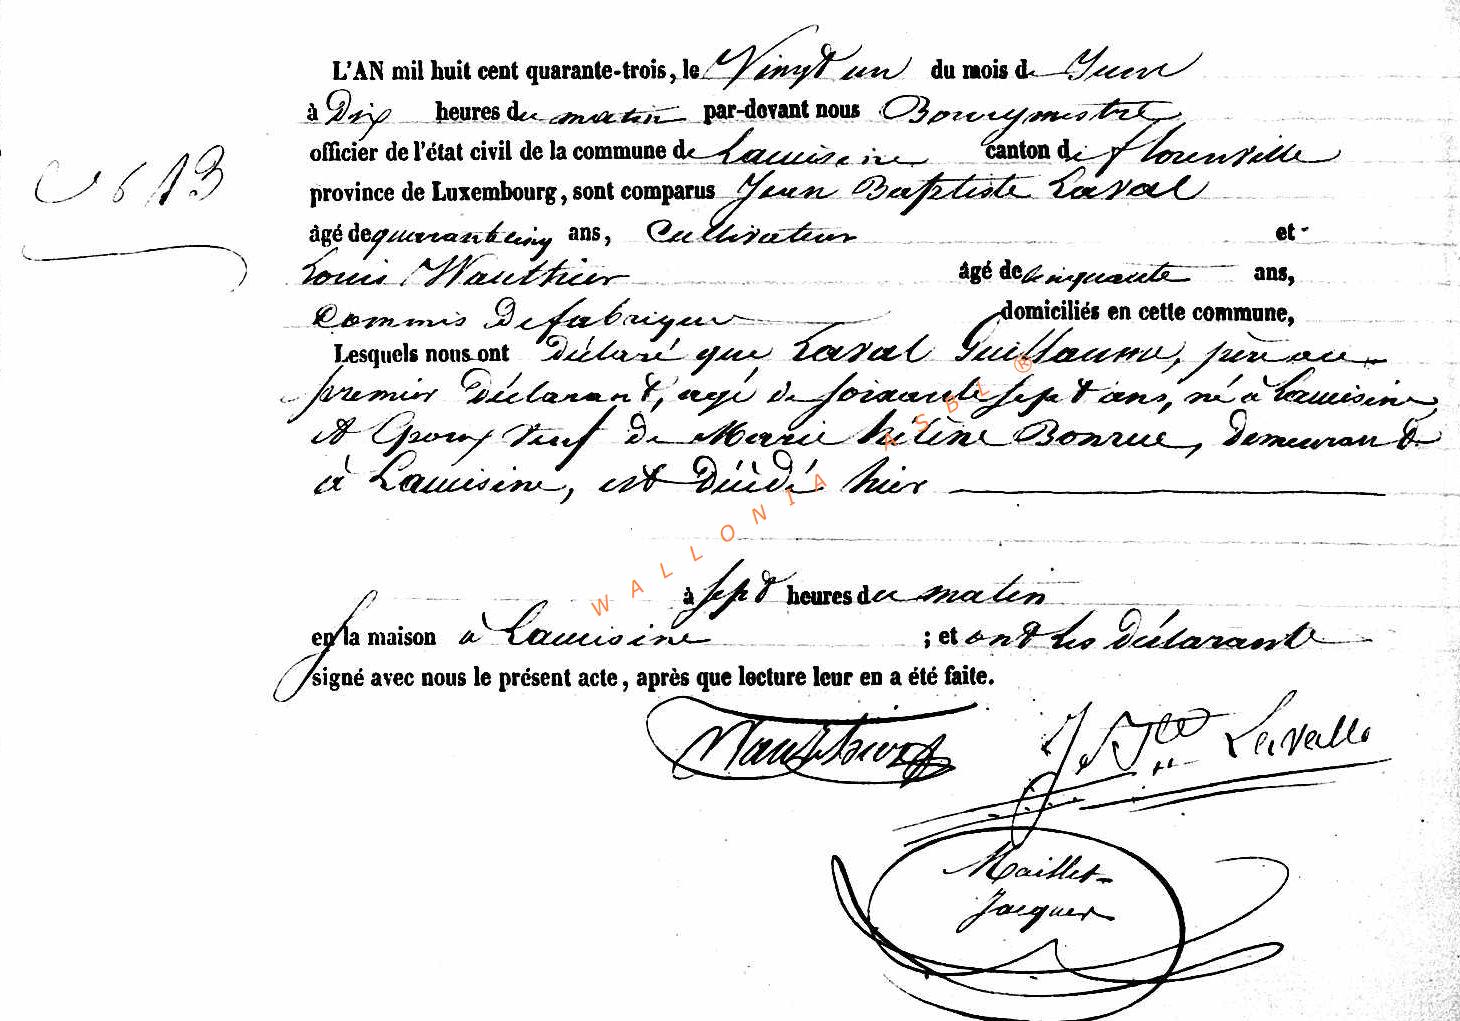 L'AN mil huit cent quarante-trois, le Vingt un du mois de Juin
à Dix heures du matin par-devant nous Bourgmestre
officier de l'état civil de la commune de Lacuisine canton de florenville
province de Luxembourg, sont comparus Jean Baptiste Laval
âgé de quarante cinq ans, Cultivateur et
Louis Wauthier âgé de cinquante ans,
Commis De fabrique domiciliés en cette commune,
Lesquels nous ont Déclaré que Laval Guillaume, père au
premier Déclarant, agé de soixante sept ans, né à Lacuisine
et Epoux veuf de Marie hélène Bonrue, demeurant
à Lacuisine, est Décédé hier
à sept heures du matin
en sa maison à Lacuisine ; et ont les Déclarants
signé avec nous le présent acte, après que lecture leur en a été faite.
Wauthier J Bte Lavalle
Maillet-
Jacques
N° 13
WALLONIA ASBL ®